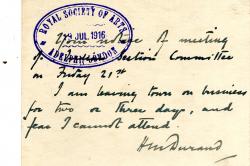 ROYAL SOCIETY OF ARTS
JUL 1916
ADELPHI LONDON
Your notice of meeting
of Section Committee
on Friday 21st
I am leaving town on business
for two or three days, and
fear I cannot attend.
HMDurand